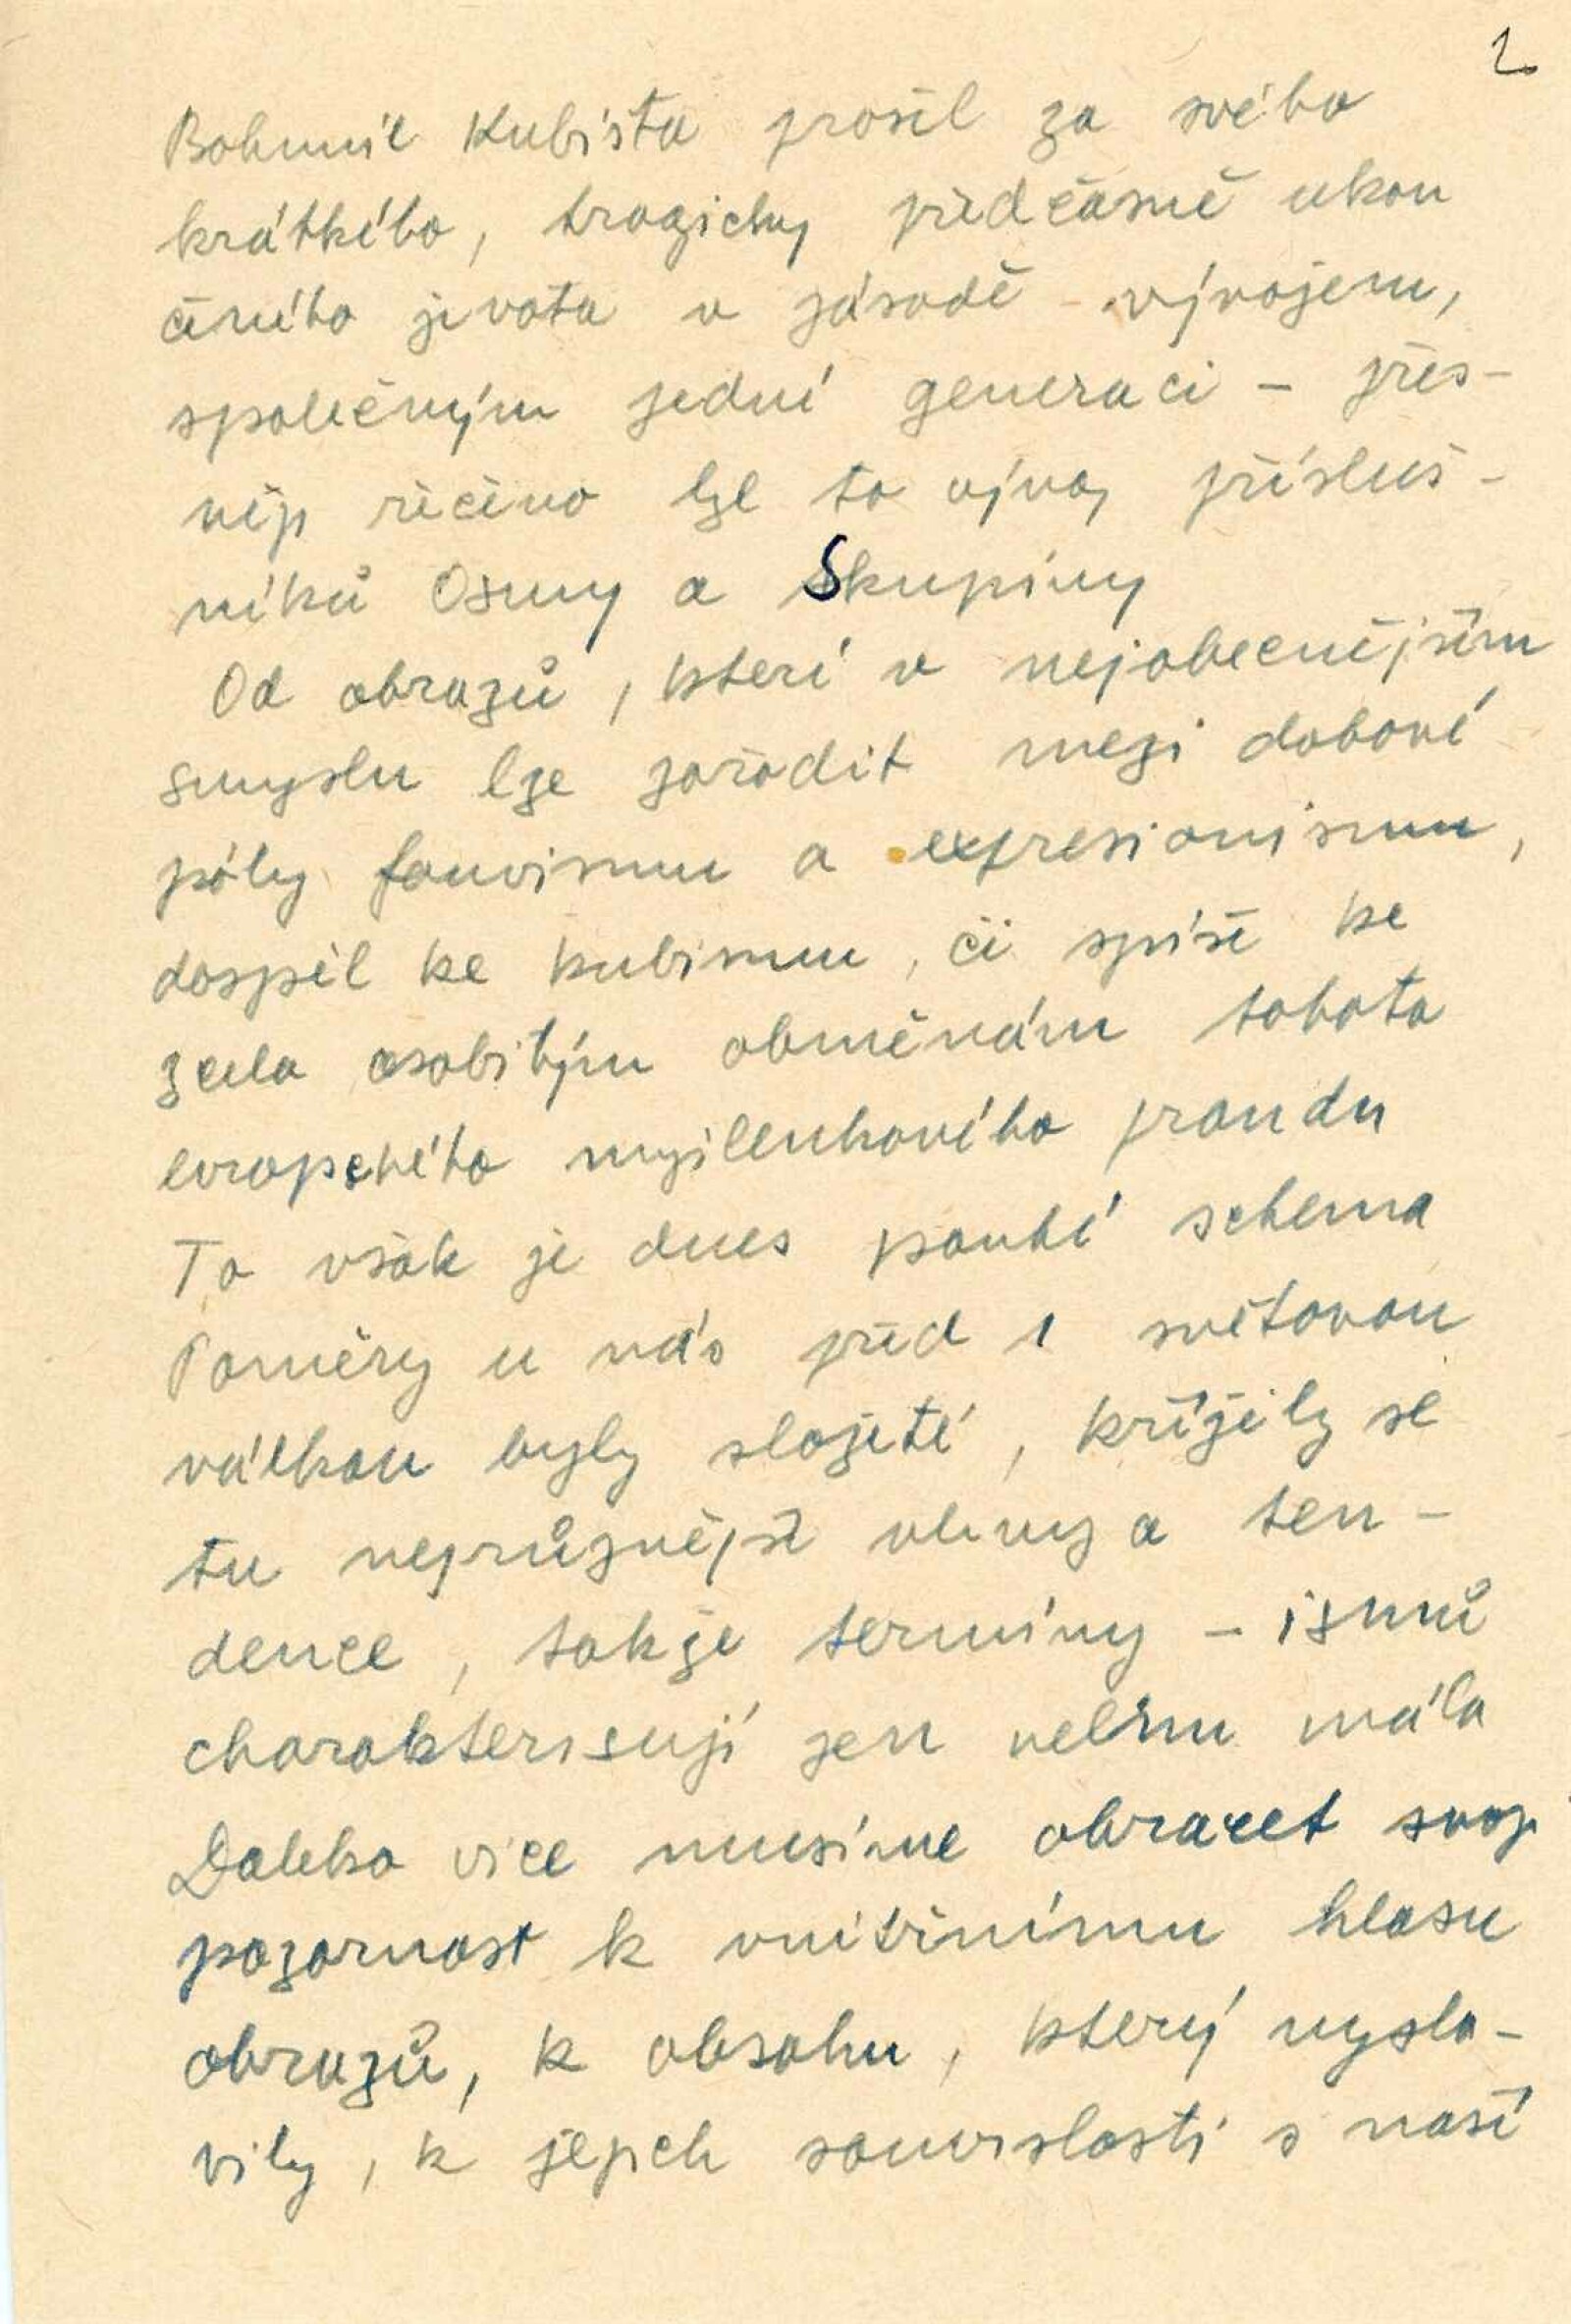 2
Bohumil Kubišta prošel za svého
krátkého, tragicky předčasně ukon
čeného života v zásadě - vývojem,
společným jedné generaci - přes-
něji řečeno lze to vývoj přísluš-
níků Osmy a Skupiny
Od obrazů, které v nejobecnějším
smyslu lze zařadit mezi dobové
póly fauvismu a expresionismu,
dospěl ke kubismu, či spíše ke
zcela osobitým obměnám tohoto
evropského myšlenkového proudu
To však je dnes pouhé schema
Poměry u nás před 1 světovou
válkou byly složité, křížily se
tu nejrůznější vlivy a ten-
dence, takže termíny - ismů
charakterisují jen velmi málo
Daleko více musíme obracet svoji
pozornost k vnitřnímu hlasu
obrazů, k obsahu, který vyslo-
vily, k jejich souvislosti s naší